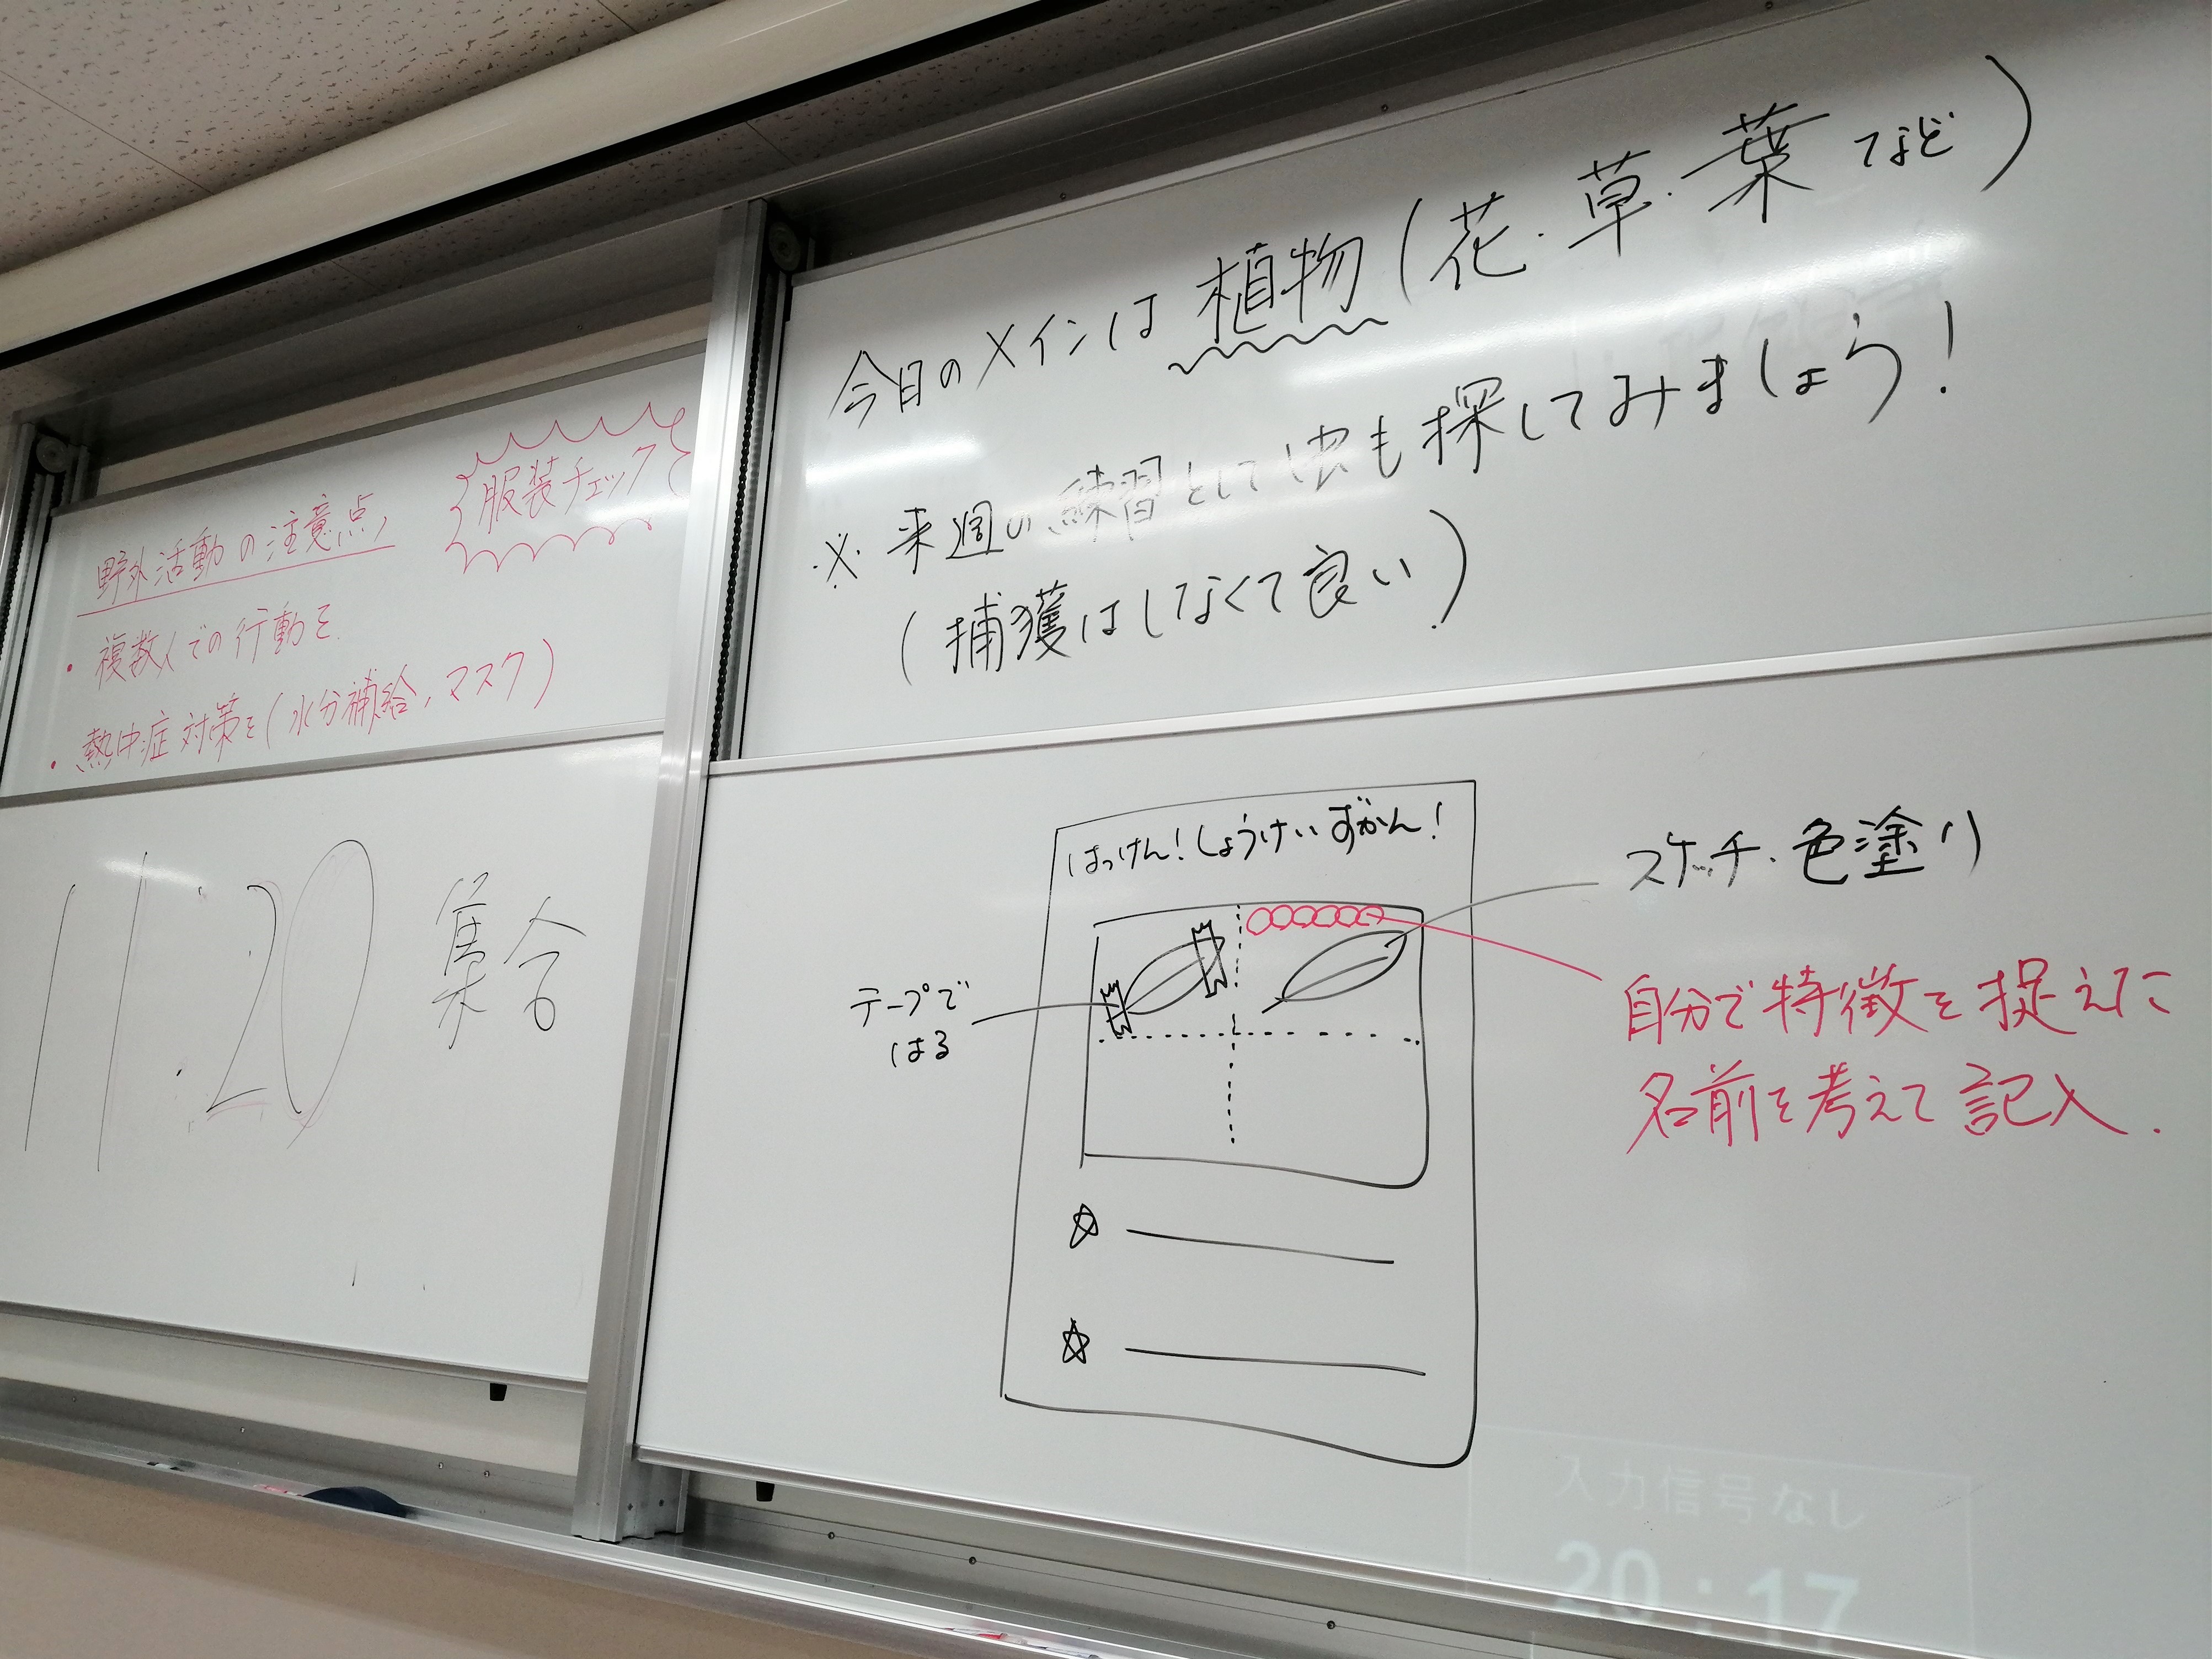 野外活動の注意点
服装チェック
・複数人での行動を
・熱中症対策を(水分補給、マスク)
11:20 集合
今日のメインは植物(花・草・葉など)
※来週の練習として虫も探してみましょう!
(捕獲はしなくて良い)
はっけん!しょうけいずかん!
テープで
はる
スケッチ・色塗り
○○○○○○
自分で特徴を捉えた
名前を考えて記入.
☆
☆
入力信号なし
20:17